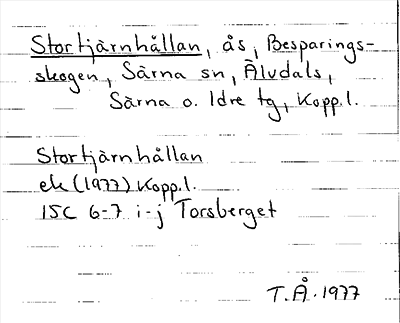 Stortjärnhållan, ås, Besparings-
skogen, Särna sn, Älvdals,
Särna o. Idre tg, Kopp.l.
Stortjärnhållan
ek (1977) Kopp.l.
15C 6-7 i-j Torsberget
T.Å. 1977